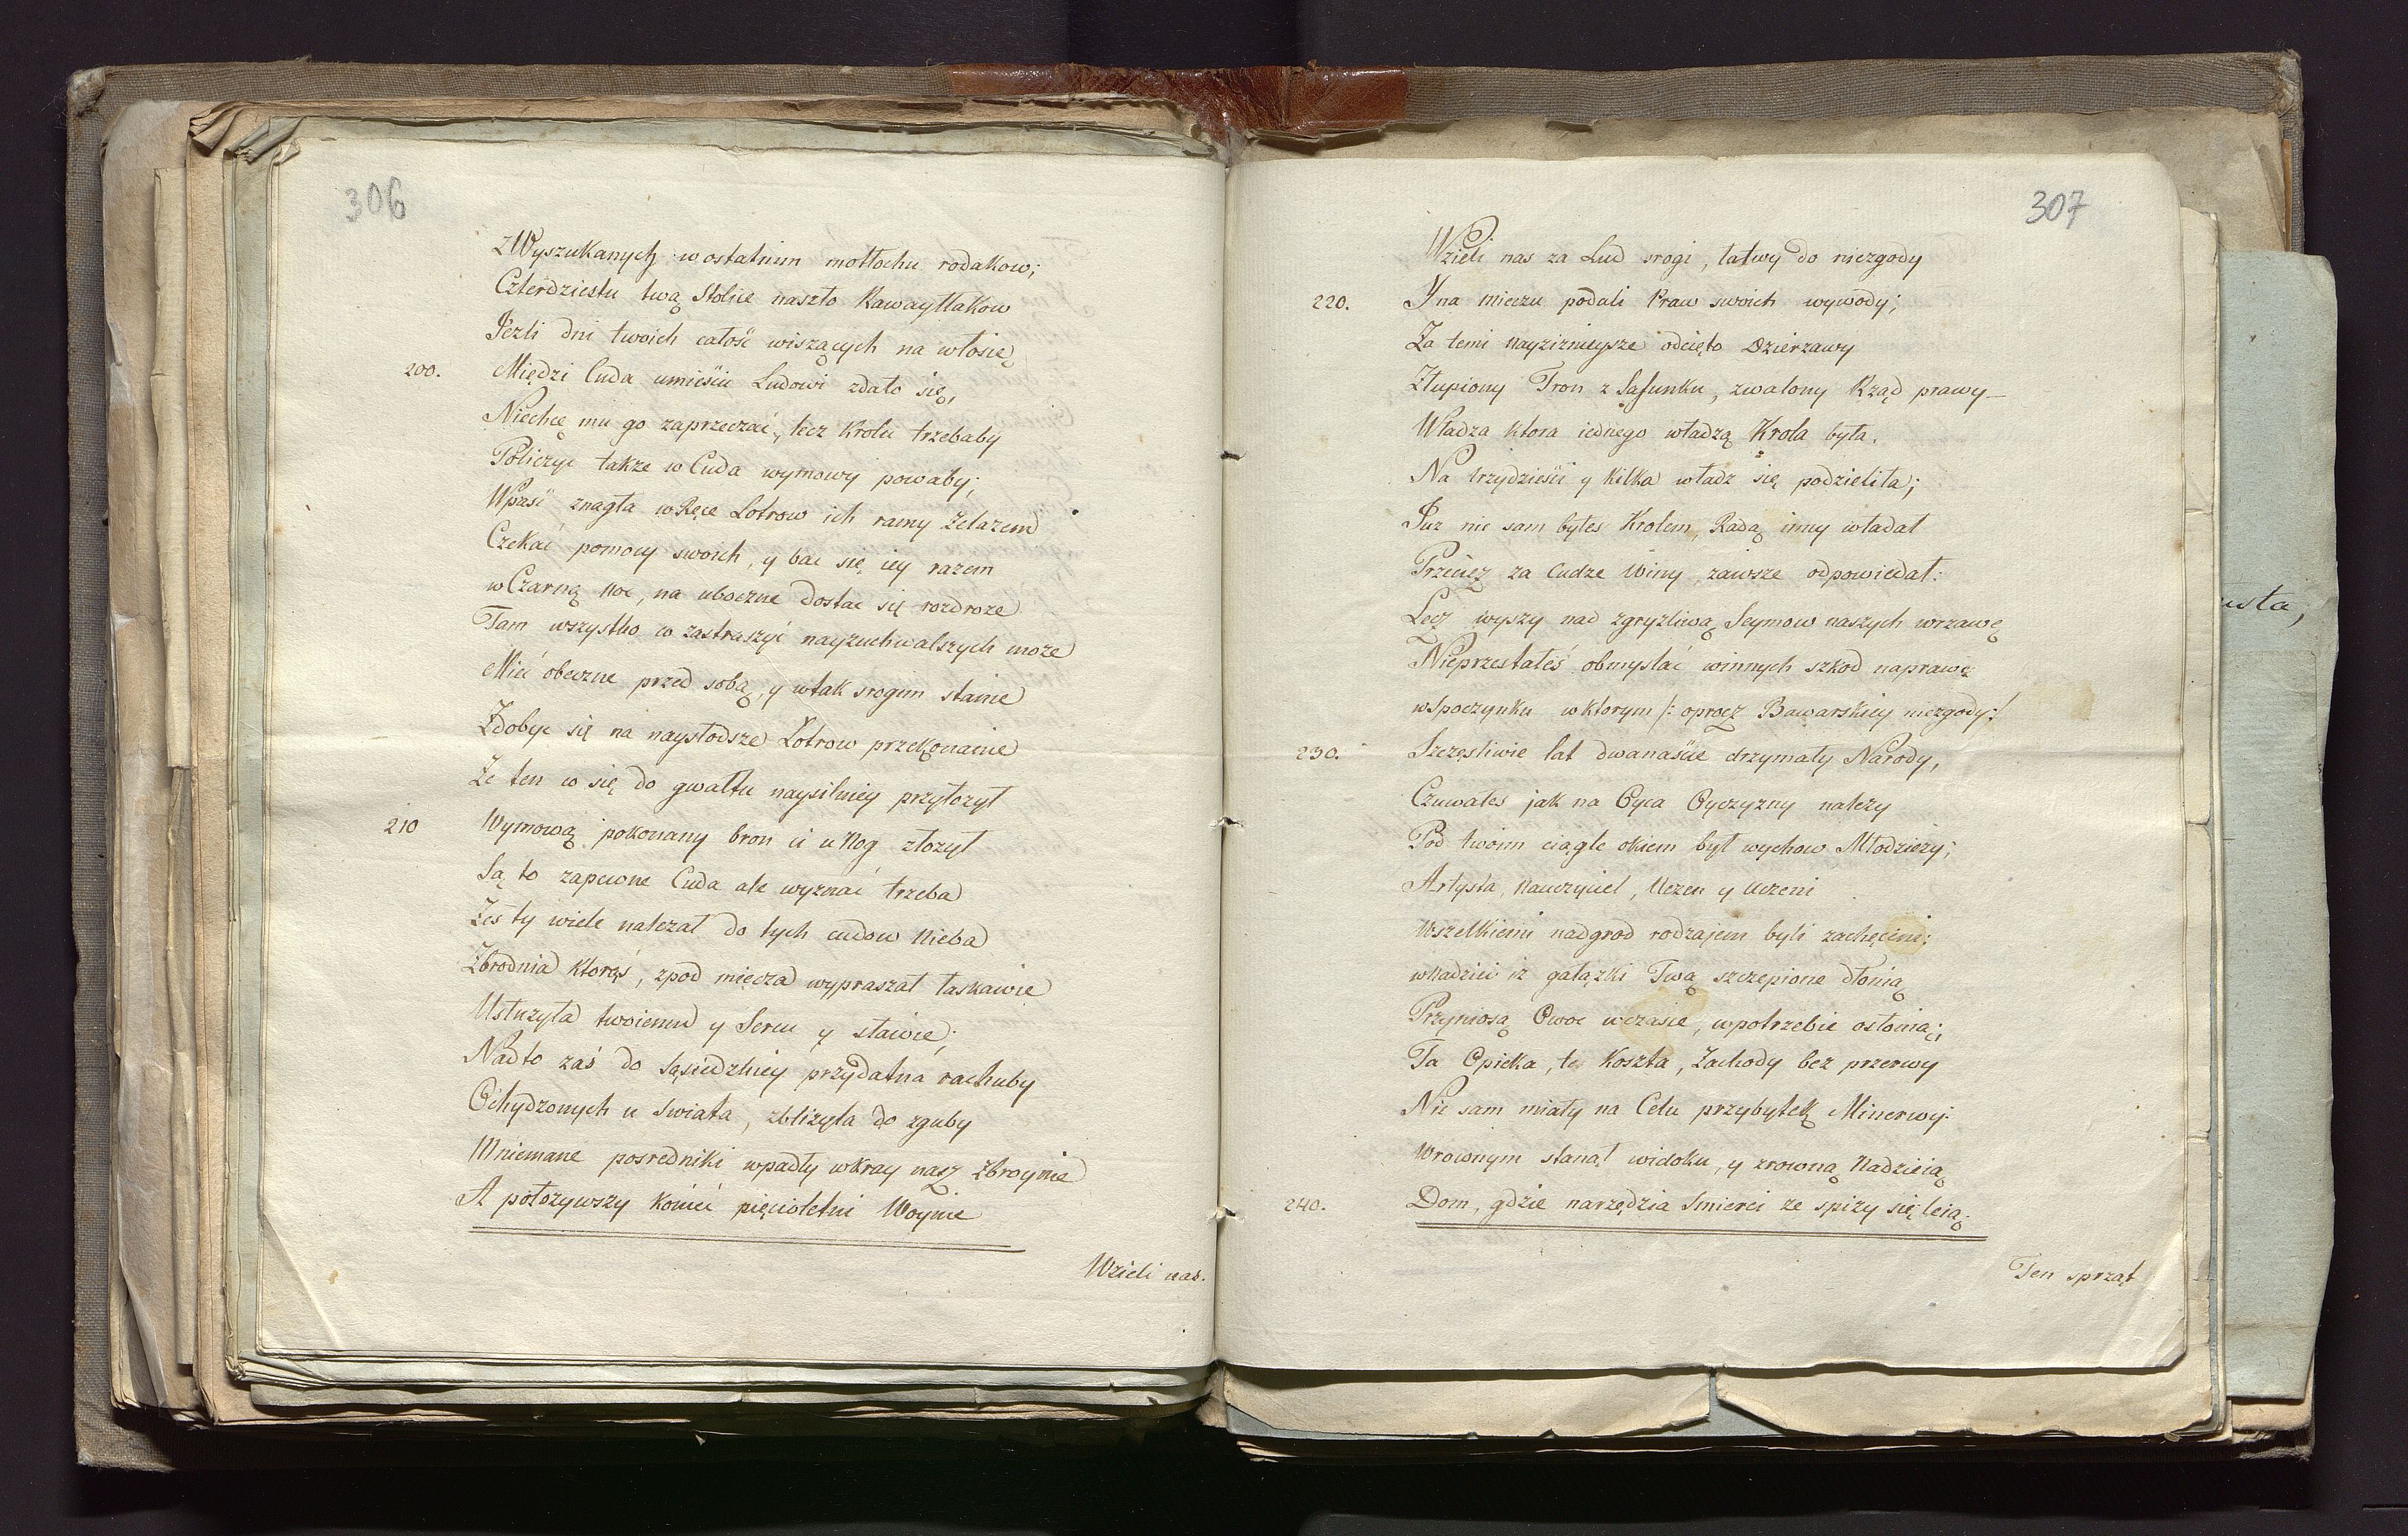 306
z Wyszukanych w ostatnim motłochu rodakow;
Czterdziestu twą Stolice naszło Kawaytlakow
Jezli dni twoich całość wiszących na włosie
200. Między Cuda umieścić Ludowi zdało się,
Niechcę mu go zaprzeczać, lecz Krolu trzebaby
Policzyc także w Cuda wymowy powaby;
Wpaść znagła w Ręce Łotrow ich ramy żelazem
Czekać pomocy swoich, y bac się iey razem
w Czarną noc, na uboczne dostac się rozdroże
Tam wszystko co zastraszyć nayzuchwalszych może
Mieć obeczne przed sobą, y wtak srogim stanie
Zdobyc się na naysłodsze Łotrow przekonanie
Że ten co się do gwałtu naysilniey przyłożył
210 Wymową pokonany bron ci u Nog złożył
Są to zapewne Cuda ale wyznać trzeba
Żes ty wiele należał do tych cudow Nieba
Zbrodnia ktorąś, zpod miecza wypraszał łaskawie
Usłużyła twoiemu y Sercu y sławie;
Nadto zaś do Sąsiedzkiey przydatna rachuby
Ochydzonych u Swiata, zbliżyła do zguby
Mniemane posredniki wpadły wkray nasz zbroynie
A położywszy koniec pięcioletni Woynie
Wzieli nas.
307
Wzieli nas za Lud srogi, łatwy do niezgody
220. Y na mieczu podali Praw swoich wywody;
Za temi nayzizniejsze odcięto Dzierzawy
Złupiony Tron z Safunku, zwalony Rząd prawy_
Władza ktora iednego władzą Krola była,
Na trzydzieści y kilka władz się podzieliła;
Juz nie sam byłes Krolem, Radą inny władał
Przeciez za Cudze Winy, zawsze odpowiedał:
Lecz wyszy nad zgryzliwą Seymow naszych wrzawę
Nieprzestałeś obmyslać winnych szkod naprawę
w Spoczynku w ktorym /: oprocz Bawarskiey niezgody:/
230. Szczęsliwie lat dwanaście drzymały Narody,
Czuwałes jak na Oyca Oyczyzny należy
Pod twoim ciągle okiem był wychow Młodziezy;
Artysta, Nauczyciel, Uczen y Uczeni
Wszelkiemi nadgrod rodzajem byli zachęceni;
w Nadziei iz gałązki Twą szczepione dłonią
Przyniosą Owoc w czasie, w potrzebie osłonią;
Ta Opieka, te Koszta, Zachody bez przerwy
Nie sam miały na Celu przybytek Minerwy:
W rownym stanął widoku, y z rowną Nadzieią
240. Dom, gdzie narzędzia Smierci ze spizy się leią;
Ten sprzęt